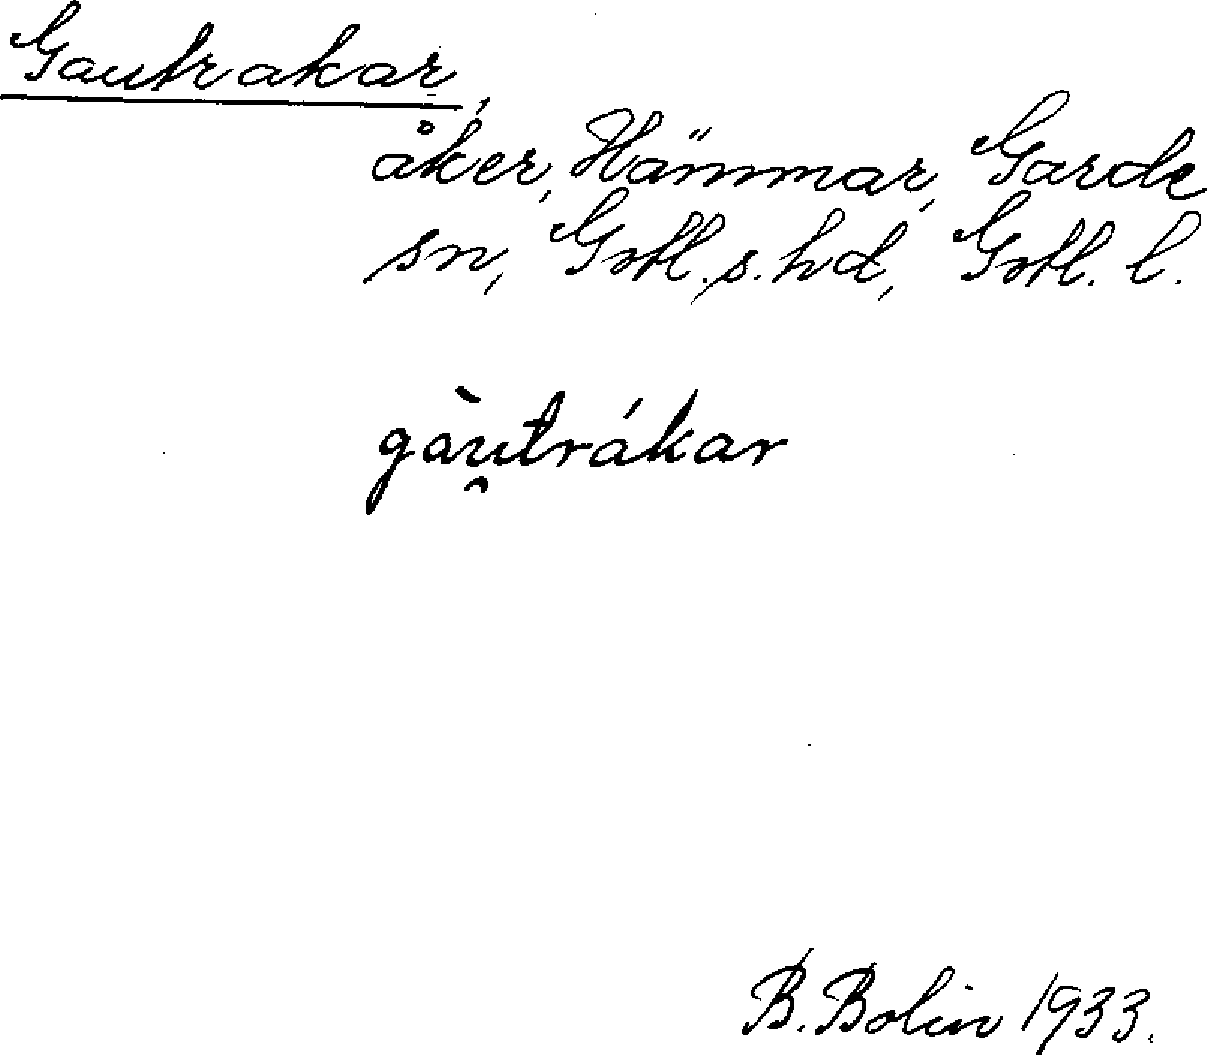 Gautrakar,
åker, Hämmar, Garde
sn, Gotl. s. hd, Gotl. l.
gàu̯trákar
B. Bolin 1933.